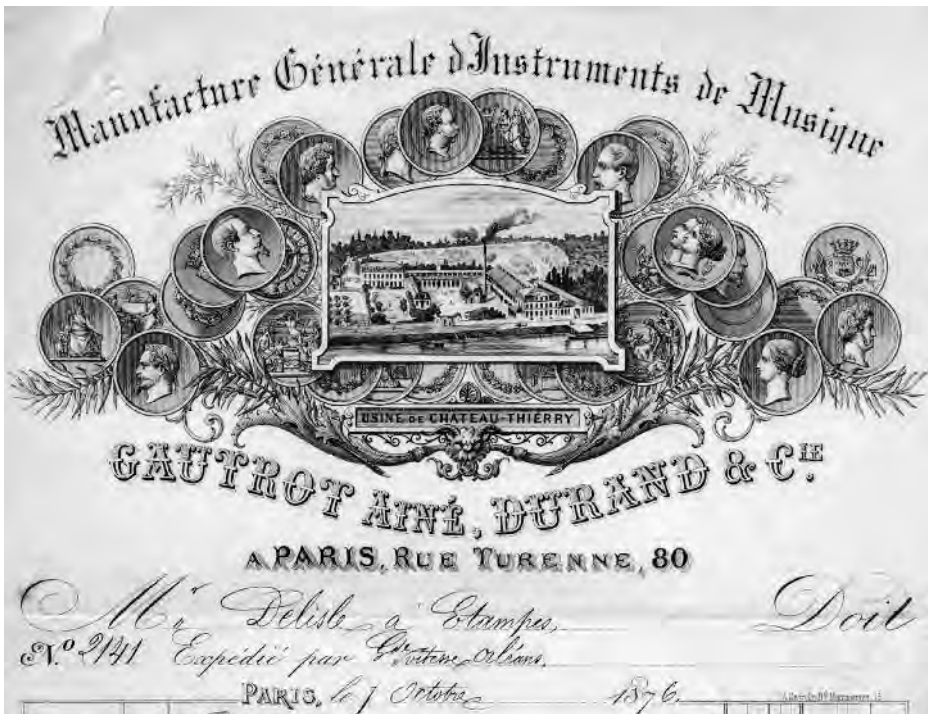 Manufacture Générale d'Instruments de Musique
USINE DE CHÂTEAU-THIÉRRY
GAUTROT AINÉ, DURAND & CIE.
A PARIS, RUE TURENNE, 80
Mr Delisle à Etampes Doit
N.º 2141 Expédié par Gde vitesse Orléans.
PARIS, le 7 Octobre 1876.